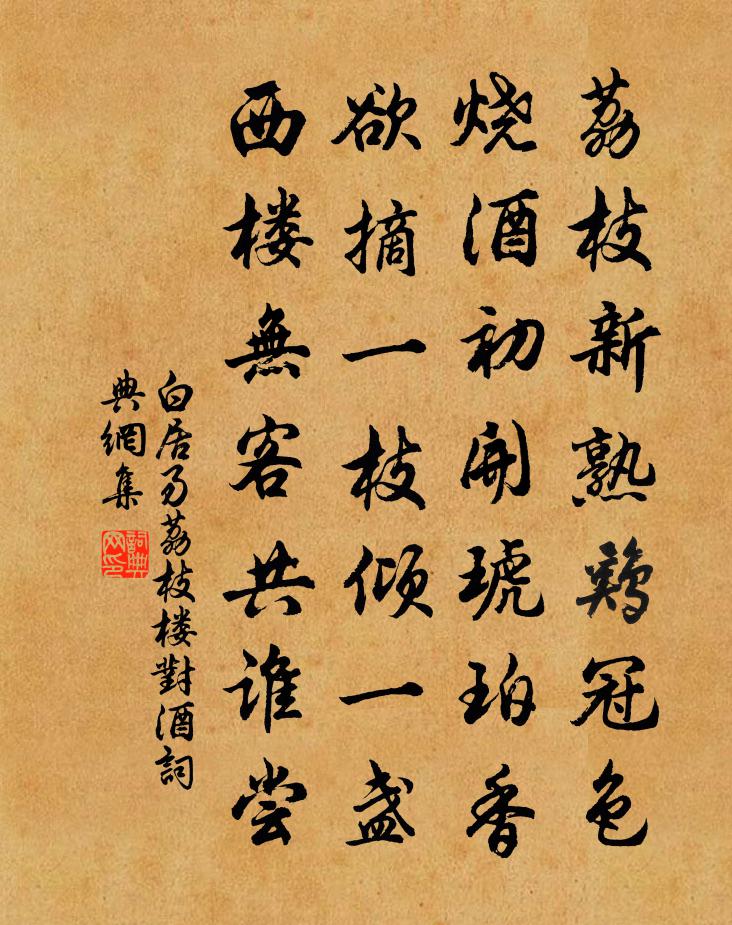 荔枝新熟鷄冠色
烧酒初開琥珀香
欲摘一枝傾一盏
西楼無客共谁尝
白居易荔枝楼對酒詞
典網集
詞典
网印